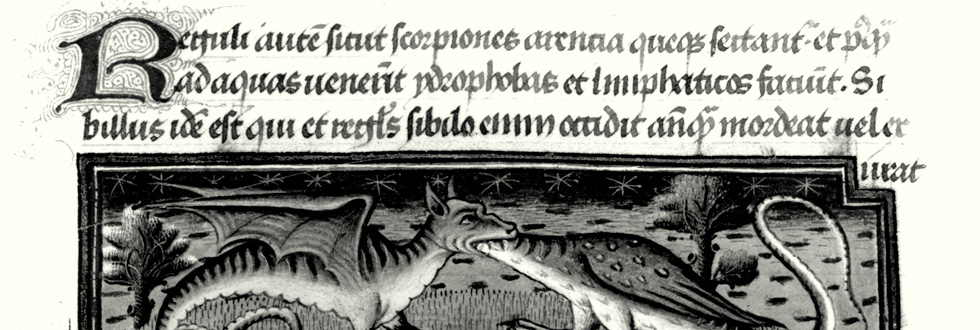 Reguli autē sicut scorpiones arentia queqз sectant̄ et pꝰqꝫ
ad aquas uenerīt ydrophobas et limphaticos faciūt. Si
billus idē est qui et regl̄s sibilo enim occidit an̄q̄ mordeat uel ex
urat